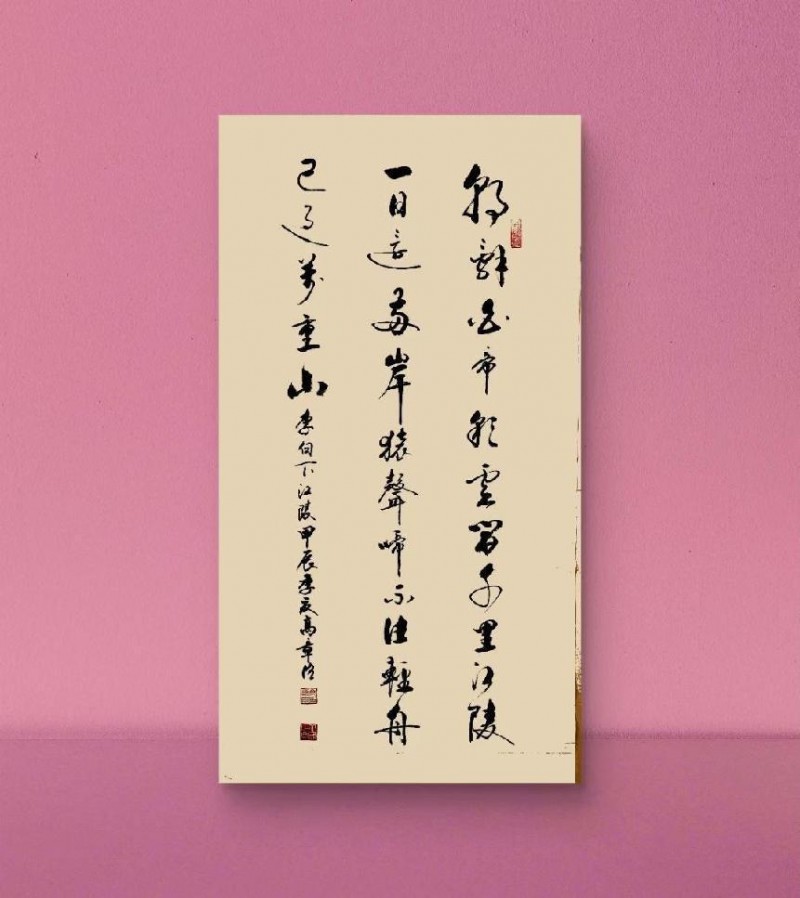 朝辭白帝彩雲間千里江陵
一日還兩岸猿聲啼不住輕舟
已過萬重山
李白下江陵甲辰季夏高章